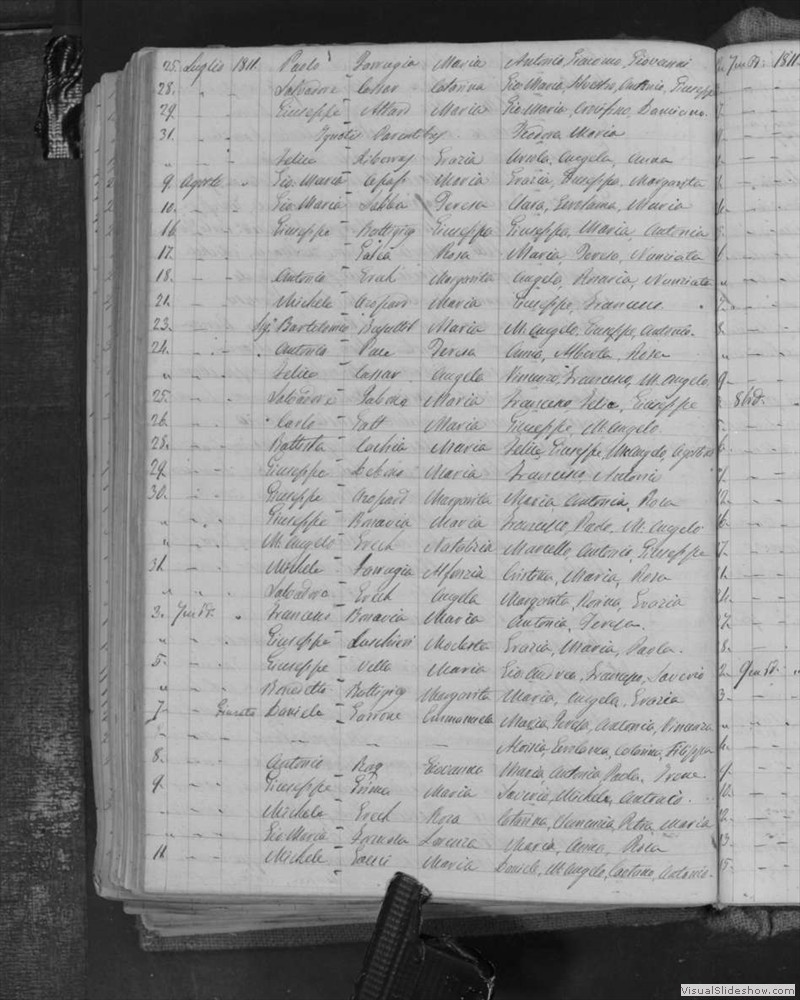 25. Luglio 1811. Paolo Farrugia Maria Antonio, Giacomo, Giovanni
28. " " Salvadore Cassar Catarina Gio Maria, Silvestro, Antonio, Giuseppe
29. - - Giuseppe Attard Maria Gio Maria, Damiano.
31. - - Ignotis Parentibus. Teodora Maria
" - - Felice Grazia Ursula, Angela, Anna
9. Agosto " Gio Maria Maria Grazia, Giuseppa, Margarita
10. - - Gio Maria Teresa Clara, Gerolama, Maria
16. - - Giuseppe Buttigieg Giuseppa Giuseppa, Maria Antonia
17. - - Galea Rosa Maria Teresa, Nunziata
18. - - Antonio Grech Margarita Angela, Rosaria, Nunziata
21. - - Michele Azopard Maria Giuseppe, Francesco
23. - - Sigr Bartolomeo Busuttil Maria M. Angelo, Giuseppe, Antonio.
24. - - Antonio Pace Teresa Anna, Alberta, Rosa
" - - Felice Cassar Angela Vincenzo, Francesco, M. Angelo
25. - - Salvadore Saliba Maria Francesco, Felice, Giuseppe
26. - - Carlo Gatt Maria Giuseppe, M. Angelo
28. - - Battista Cachia Maria Felice, Giuseppe, M. Angelo, Agostino
29. - - Giuseppe Maria Francesco Antonio
30. - - Giuseppe Azopard Margarita Maria Antonia, Rosa
" " " Giuseppe Bonavia Maria Francesco, Paolo, M. Angelo
" " " M. Angelo Grech Natalizia Marcello, Antonio, Giuseppe
31. - - Michele Farrugia Alfonsia Cristina, Maria, Rosa
" " " Salvadore Grech Angela Margarita, Rosina, Grazia
3. 7mbr. " Francesco Bonavia Maria Antonia, Teresa.
" - - Giuseppe Luchieri Modesta Grazia, Maria, Paola.
5. - - Giuseppe Vella Maria Gio Andrea, Francesco, Saverio
" - - Benedetto Buttigieg Margarita Maria, Angela, Grazia
7. - Daniele Emmanuela Maria, Teresa, Antonia, Vincenza
- - - - Aloisia, Gerolama, Catarina, Filippa
8. - - Antonio Borg Giovanna Maria Antonia, Paola, Irene
9. - - Giuseppe Maria Saverio, Michele, Antonio.
- - Michele Grech Rosa Catarina, Petra, Maria
- - Gio Maria Formosa Lorenza Maria, Anna, Rosa
11. - - Michele Gauci Maria Daniele, M. Angelo, Gaetano, Antonio.
7mbr. 1811
8br.
9mbr.
VisualSlideshow.com